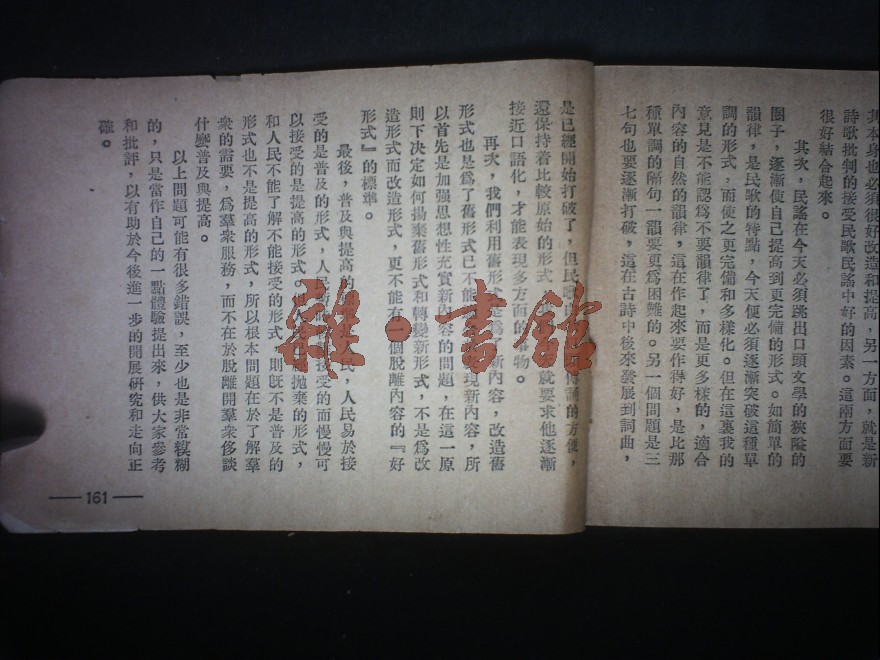 其本身也必須很好改造和提高，另一方面，就是新
詩歌批判的接受民歌民謠中好的因素。這兩方面要
很好結合起來。
其次，民謠在今天必須跳出口頭文學的狹隘的
圈子，逐漸使自己提高到更完備的形式。如簡單的
韻律，是民歌的特點，今天便必須逐漸突破這種單
調的形式，而使之更完備和多樣化。但在這裏我的
意見是不能認爲不要韻律了，而是更多樣的，適合
內容的自然的韻律，這在作起來要作得好，是比那
種單調的隔句一韻要更爲困難的。另一個問題是三
七句也要逐漸打破，這在古詩中後來發展到詞曲，
是已經開始打破了，但民歌 傳誦的方便，
還保持着比較原始的形式， 就要求他逐漸
接近口語化，才能表現多方面的事物。
再次，我們利用舊形式是爲了新內容，改造舊
形式也是爲了舊形式已不能 現新內容，所
以首先是加強思想性充實新內容的問題，在這一原
則下决定如何揚棄舊形式和轉變新形式，不是爲改
造形式而改造形式，更不能有一個脫離內容的『好
形式』的標準。
最後，普及與提高的 人民，人民易於接
受的是普及的形式，人民 接受的而慢慢可
以接受的是提高的形式， 拋棄的形式，
和人民不能了解不能接受的形式，則旣不是普及的
形式也不是提高的形式，所以根本問題在於了解羣
衆的需要，爲羣衆服務，而不在於脫離開羣衆侈談
什麽普及與提高。
以上問題可能有很多錯誤，至少也是非常模糊
的，只是當作自己的一點體驗提出來，供大家參考
和批評，以有助於今後進一步的開展研究和走向正
確。
161
雜·書館